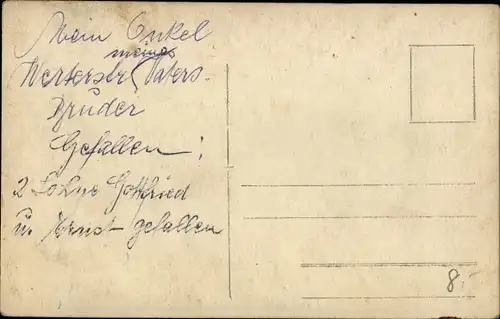 Mein Onkel
meines
Vaters-
Bruder
Gefallen!
2 Söhne Gottfried
u. Ernst gefallen
8.-